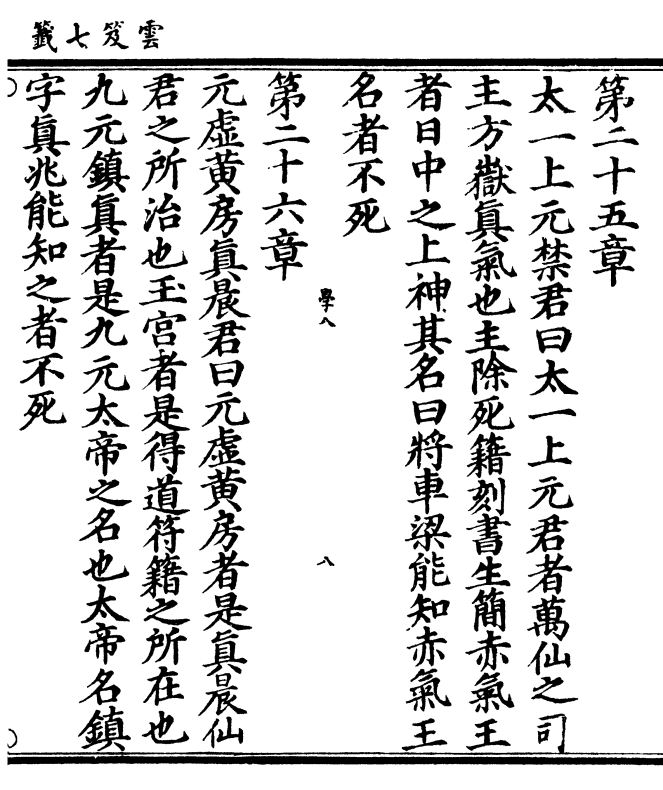 雲笈七籤
第二十五章
太一上元禁君曰太一上元君者萬仙之司
主方嶽眞氣也主除死籍刻書生簡赤氣王
者日中之上神其名曰將車梁能知赤氣王
名者不死
學八
八
第二十六章
元虛黃房眞晨君曰元虛黃房者是眞晨仙
君之所治也玉宮者是得道符籍之所在也
九元鎮眞者是九元太帝之名也太帝名鎮
字眞兆能知之者不死